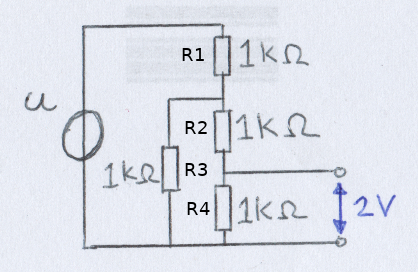 R1 1kΩ
u
R2 1kΩ
1kΩ R3
R4 1kΩ
2V